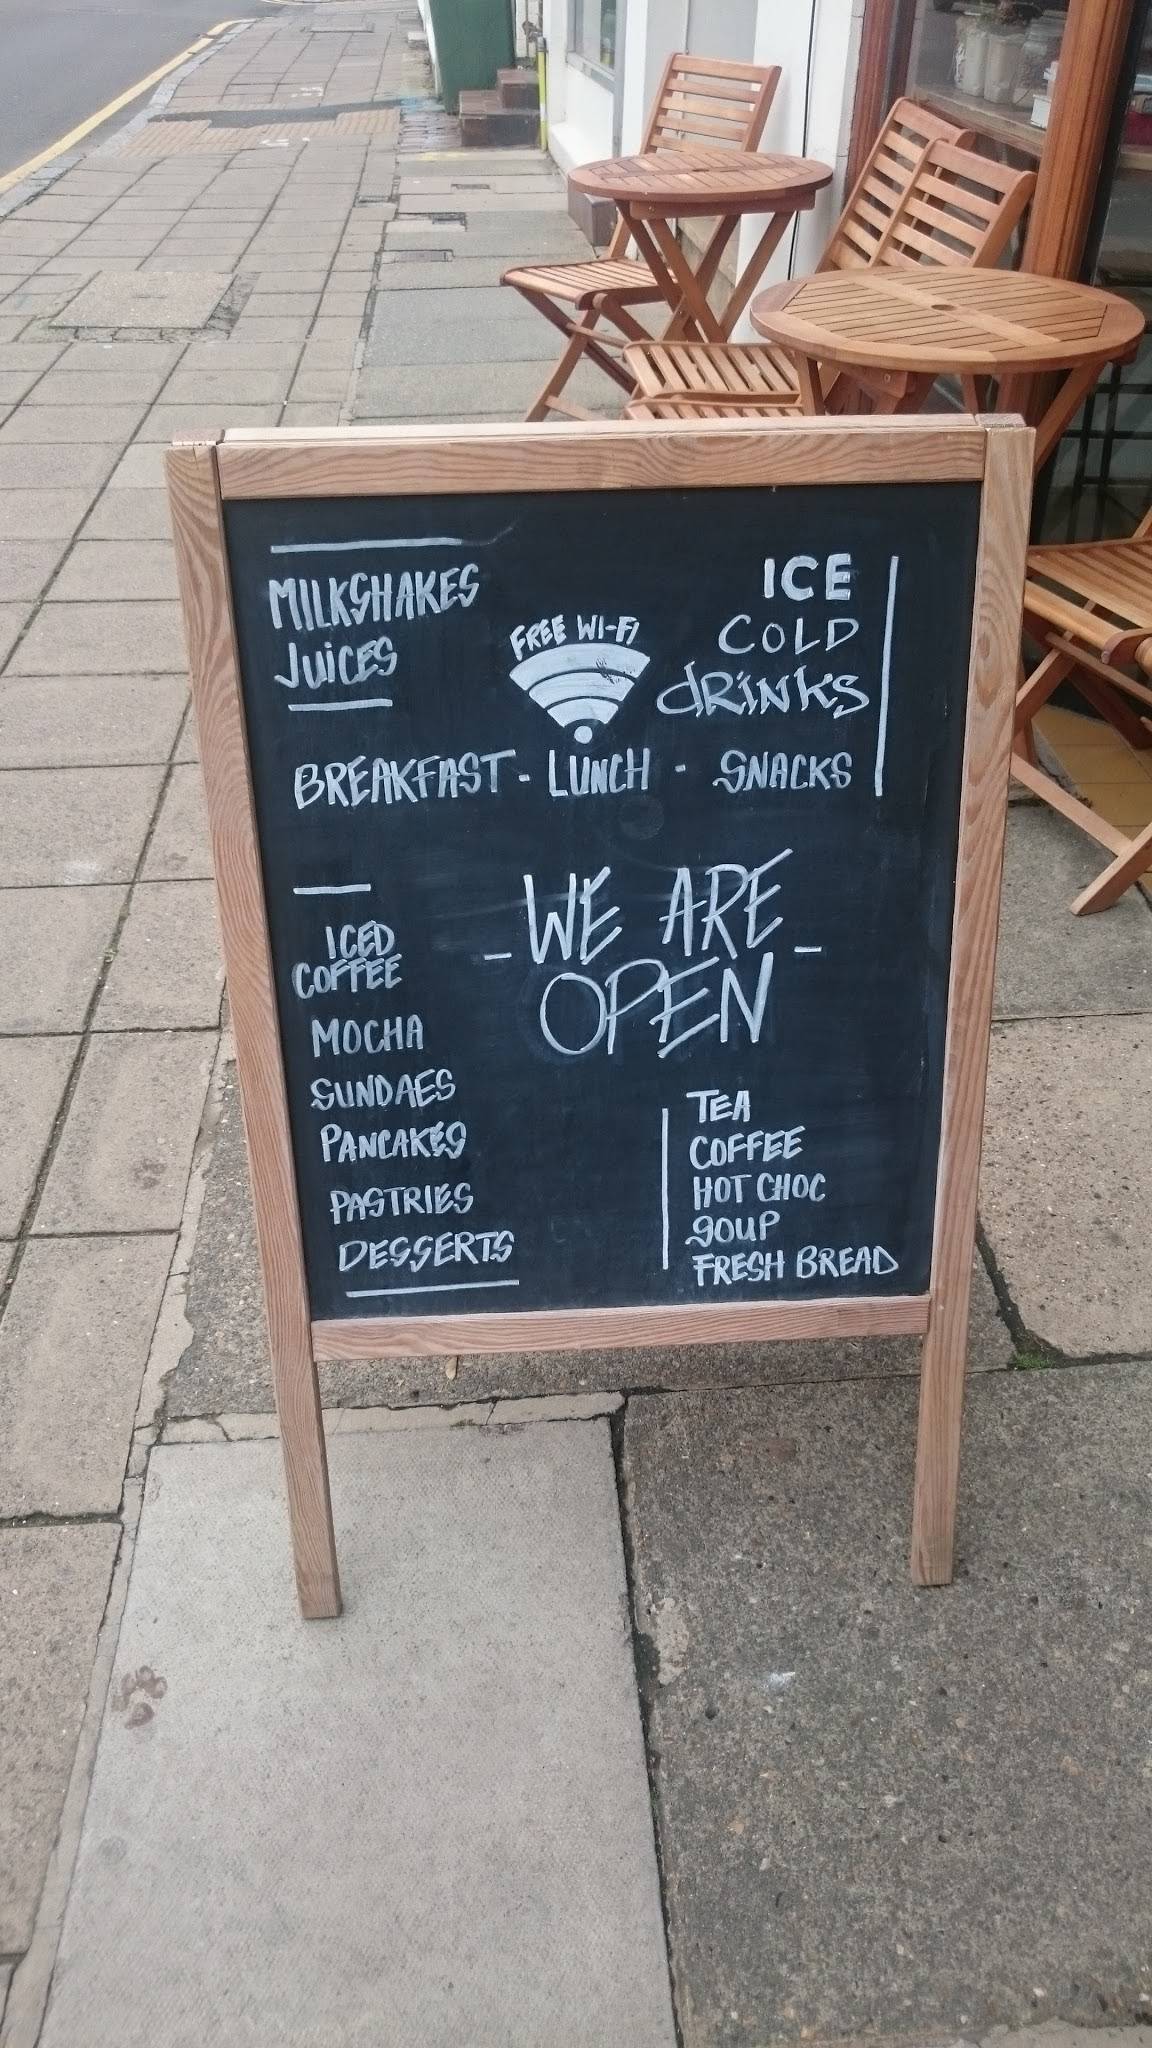 MILKSHAKES
JUiCES
FREE WI-FI
ICE
COLD
dRiNKS
BREAKFAST - LUNCH - SNACKS
- WE ARE -
OPEN
ICED
COFFEE
MOCHA
SUNDAES
PANCAKES
PASTRIES
DESSERTS
TEA
COFFEE
HOT CHOC
SOUP
FRESH BREAD